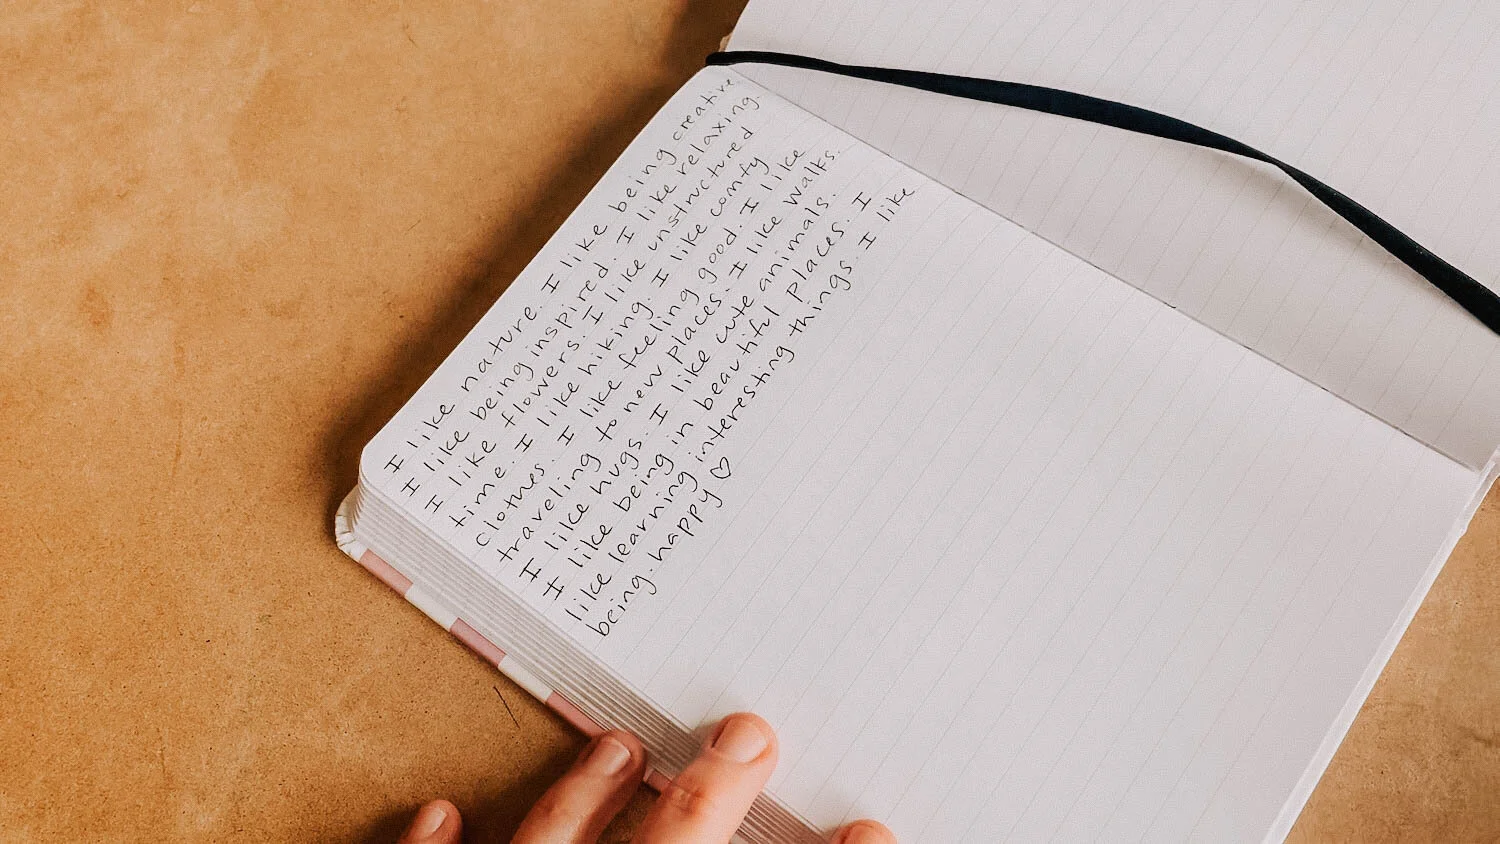 I like nature. I like being creative.
I like being inspired. I like relaxing.
I like flowers. I like unstructured
time. I like hiking. I like comfy
clothes. I like feeling good. I like
traveling to new places. I like walks.
I like hugs. I like cute animals.
I like being in beautiful places. I
like learning interesting things. I like
being. happy ♡